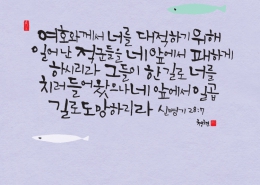 여호와께서 너를 대적하기 위해
일어난 적군들을 네 앞에서 패하게
하시리라 그들이 한 길로 너를
치러 들어왔으나 네 앞에서 일곱
길로 도망하리라 신명기 28:7